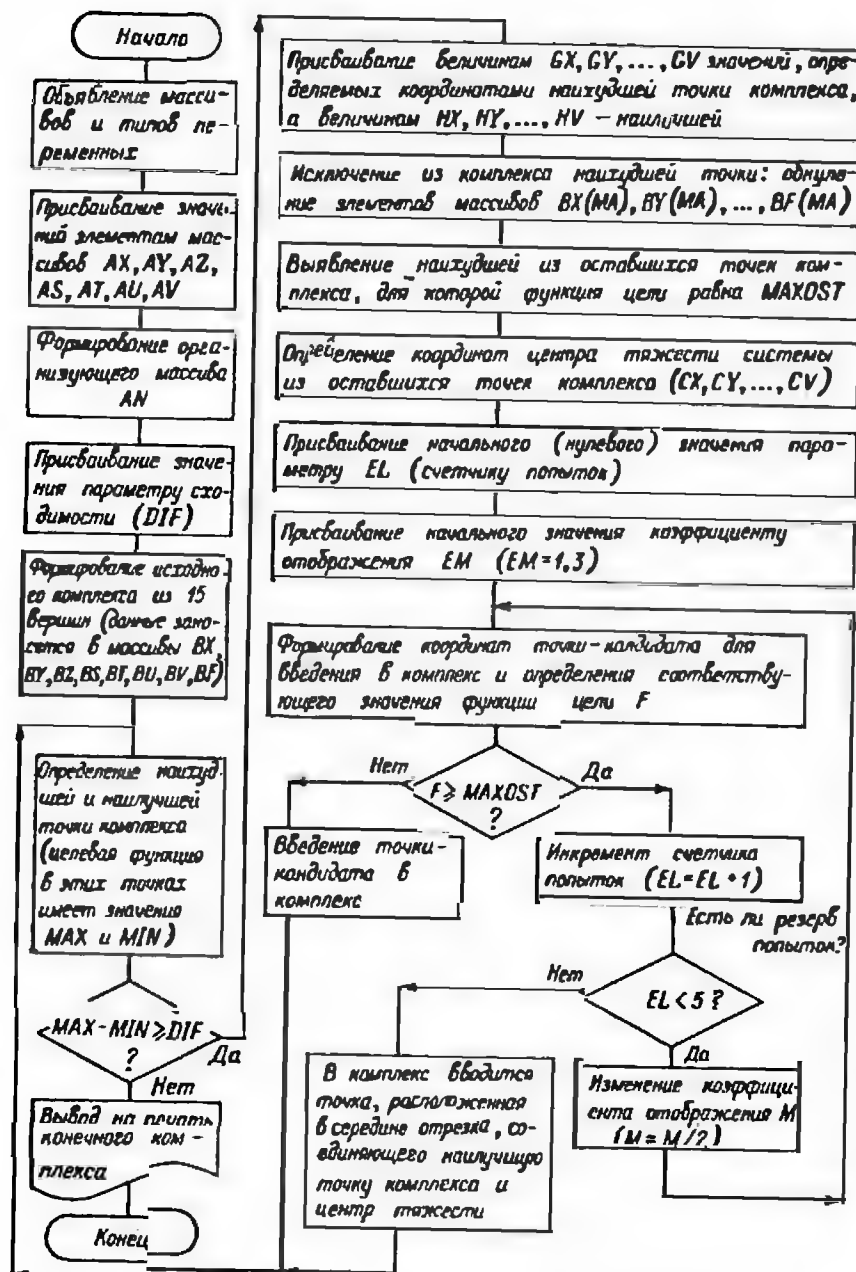 Начало
Объявление масси-
вов и типов пе-
ременных
Присваивание значе-
ний элементам мас-
сивов AX, AY, AZ,
AS, AT, AU, AV
Формирование орга-
низующего массива
AN
Присваивание значе-
ния параметру схо-
димости (DIF)
Формирование исходно-
го комплекта из 15
вершин (данные зано-
сятся в массивы BX,
BY, BZ, BS, BT, BU, BV, BF)
Определение наихуд-
шей и наилучшей
точки комплекса
(целевая функция
в этих точках
имеет значения
MAX и MIN)
MAX-MIN⩾DIF
?
Да
Нет
Вывод на печать
конечного ком-
плекса
Конец
Присваивание величинам GX, GY, ..., GV значений, опре-
деляемых координатами наихудшей точки комплекса,
а величинам HX, HY, ..., HV – наилучшей
Исключение из комплекса наихудшей точки: обнуле-
ние элементов массивов BX(MA), BY(MA), ..., BF(MA)
Выявление наихудшей из оставшихся точек ком-
плекса, для которой функция цели равна MAXOST
Определение координат центра тяжести системы
из оставшихся точек комплекса (CX, CY, ..., CV)
Присваивание начального (нулевого) значения пара-
метру EL (счетчику попыток)
Присваивание начального значения коэффициенту
отображения EM (EM=1,3)
Формирование координат точки-кандидата для
введения в комплекс и определения соответству-
ющего значения функции цели F
Нет
F⩾MAXOST
?
Да
Введение точки-
кандидата в
комплекс
Инкремент счетчика
попыток (EL=EL+1)
Есть ли резерв
попыток?
Нет
EL<5?
Да
В комплекс вводится
точка, расположенная
в середине отрезка, со-
единяющего наилучшую
точку комплекса и
центр тяжести
Изменение коэффици-
ента отображения M
(M=M/2)